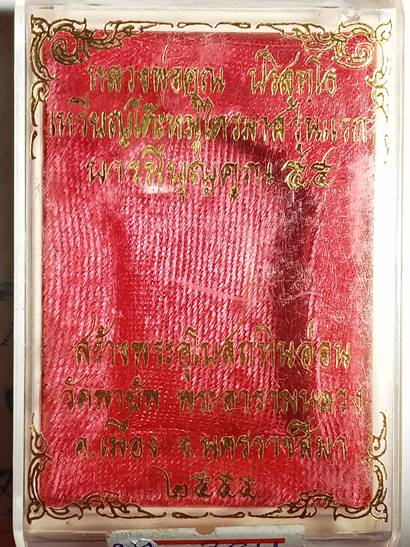 หลวงพ่อคูณ ปริสุทฺโธ
เหรียญโต๊ะหมู่ไตรมาส รุ่นแรก
บารมีบุญคูณ ๕๕
สร้างพระอุโบสถหินอ่อน
วัดพายัพ พระอารามหลวง
อ.เมือง จ.นครราชสีมา
๒๕๕๕